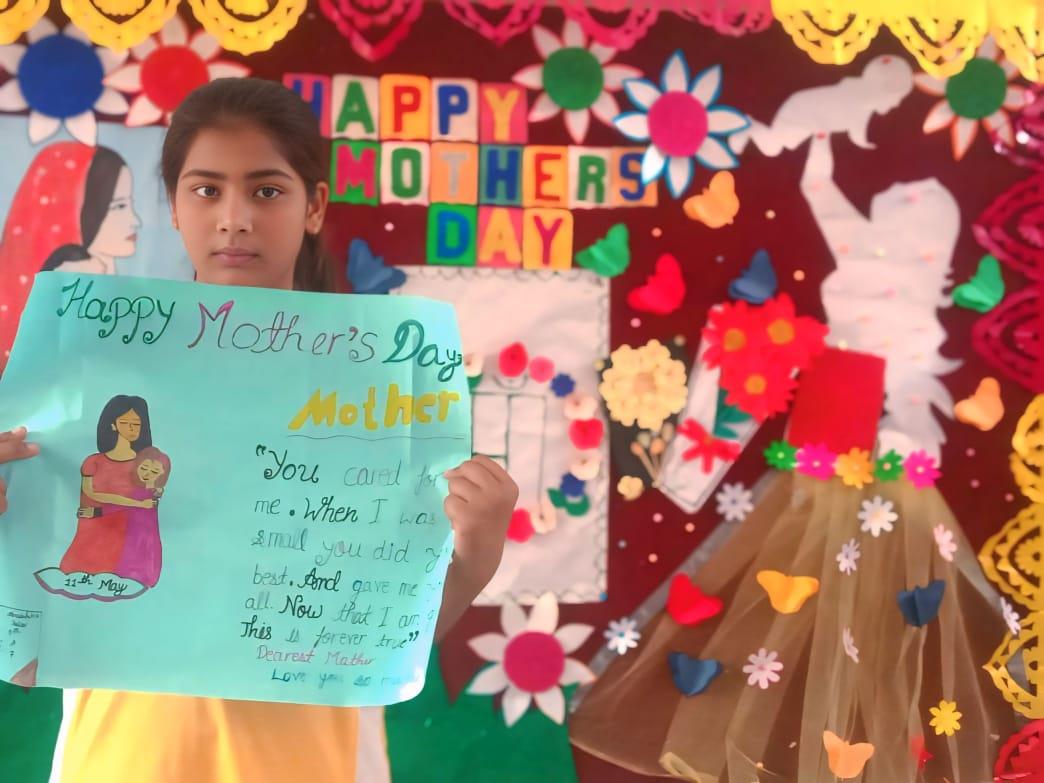 HAPPY
MOTHERS
DAY
Happy Mother's Day
Mother
"You cared for
me. When I was
small you did
best. And gave me
all. Now that I am
This is forever true"
Dearest Mother
Love you so
11th May
7